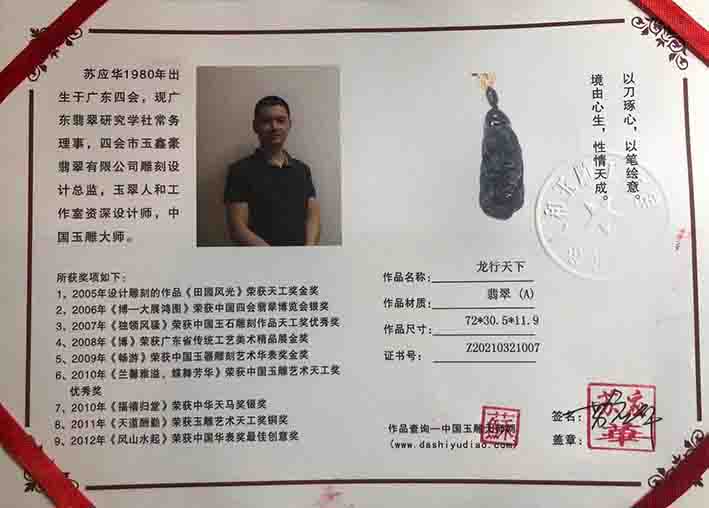 苏应华1980年出
生于广东四会，现广
东翡翠研究学社常务
理事，四会市玉鑫豪
翡翠有限公司雕刻设
计总监，玉翠人和工
作室资深设计师，中
国玉雕大师。
以刀琢心，以笔绘意。
境由心生，性情天成。
所获奖项如下：
1、2005年设计雕刻的作品《田园风光》荣获天工奖金奖
2、2006年《博一大展鸿图》荣获中国四会翡翠博览会银奖
3、2007年《独领风骚》荣获中国玉石雕刻作品天工奖优秀奖
4、2008年《博》荣获广东省传统工艺美术精品展金奖
5、2009年《畅游》荣获中国玉器雕刻艺术华表奖金奖
6、2010年《兰馨雅溢、蝶舞芳华》荣获中国玉雕艺术天工奖
优秀奖
7、2010年《福禧归堂》荣获中华天马奖银奖
8、2011年《天道酬勤》荣获玉雕艺术天工奖铜奖
9、2012年《风山水起》荣获中国华表奖最佳创意奖
作品名称： 龙行天下
作品材质： 翡翠 (A)
作品尺寸： 72*30.5*11.9
证书号： Z20210321007
作品查询—中国玉雕大师网
(www.dashiyudiao.com)
签名：
盖章：
苏应华